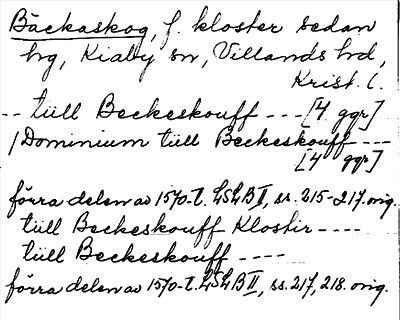 Bäckaskog, f. kloster sedan
hg, Kiaby sn, Villands hd,
Krist. l.
-- tüll Beckeskouff --- [4 ggr]
1 Dominium tüll Beckeskouff ---
[4 ggr]
förra delen av 1570-t. LSLB II, ss. 215-217. orig.
tüll Beckeskouff Klostir ----
tüll Beckeskouff ----
förra delen av 1570-t. LSLB II, ss. 217, 218. orig.